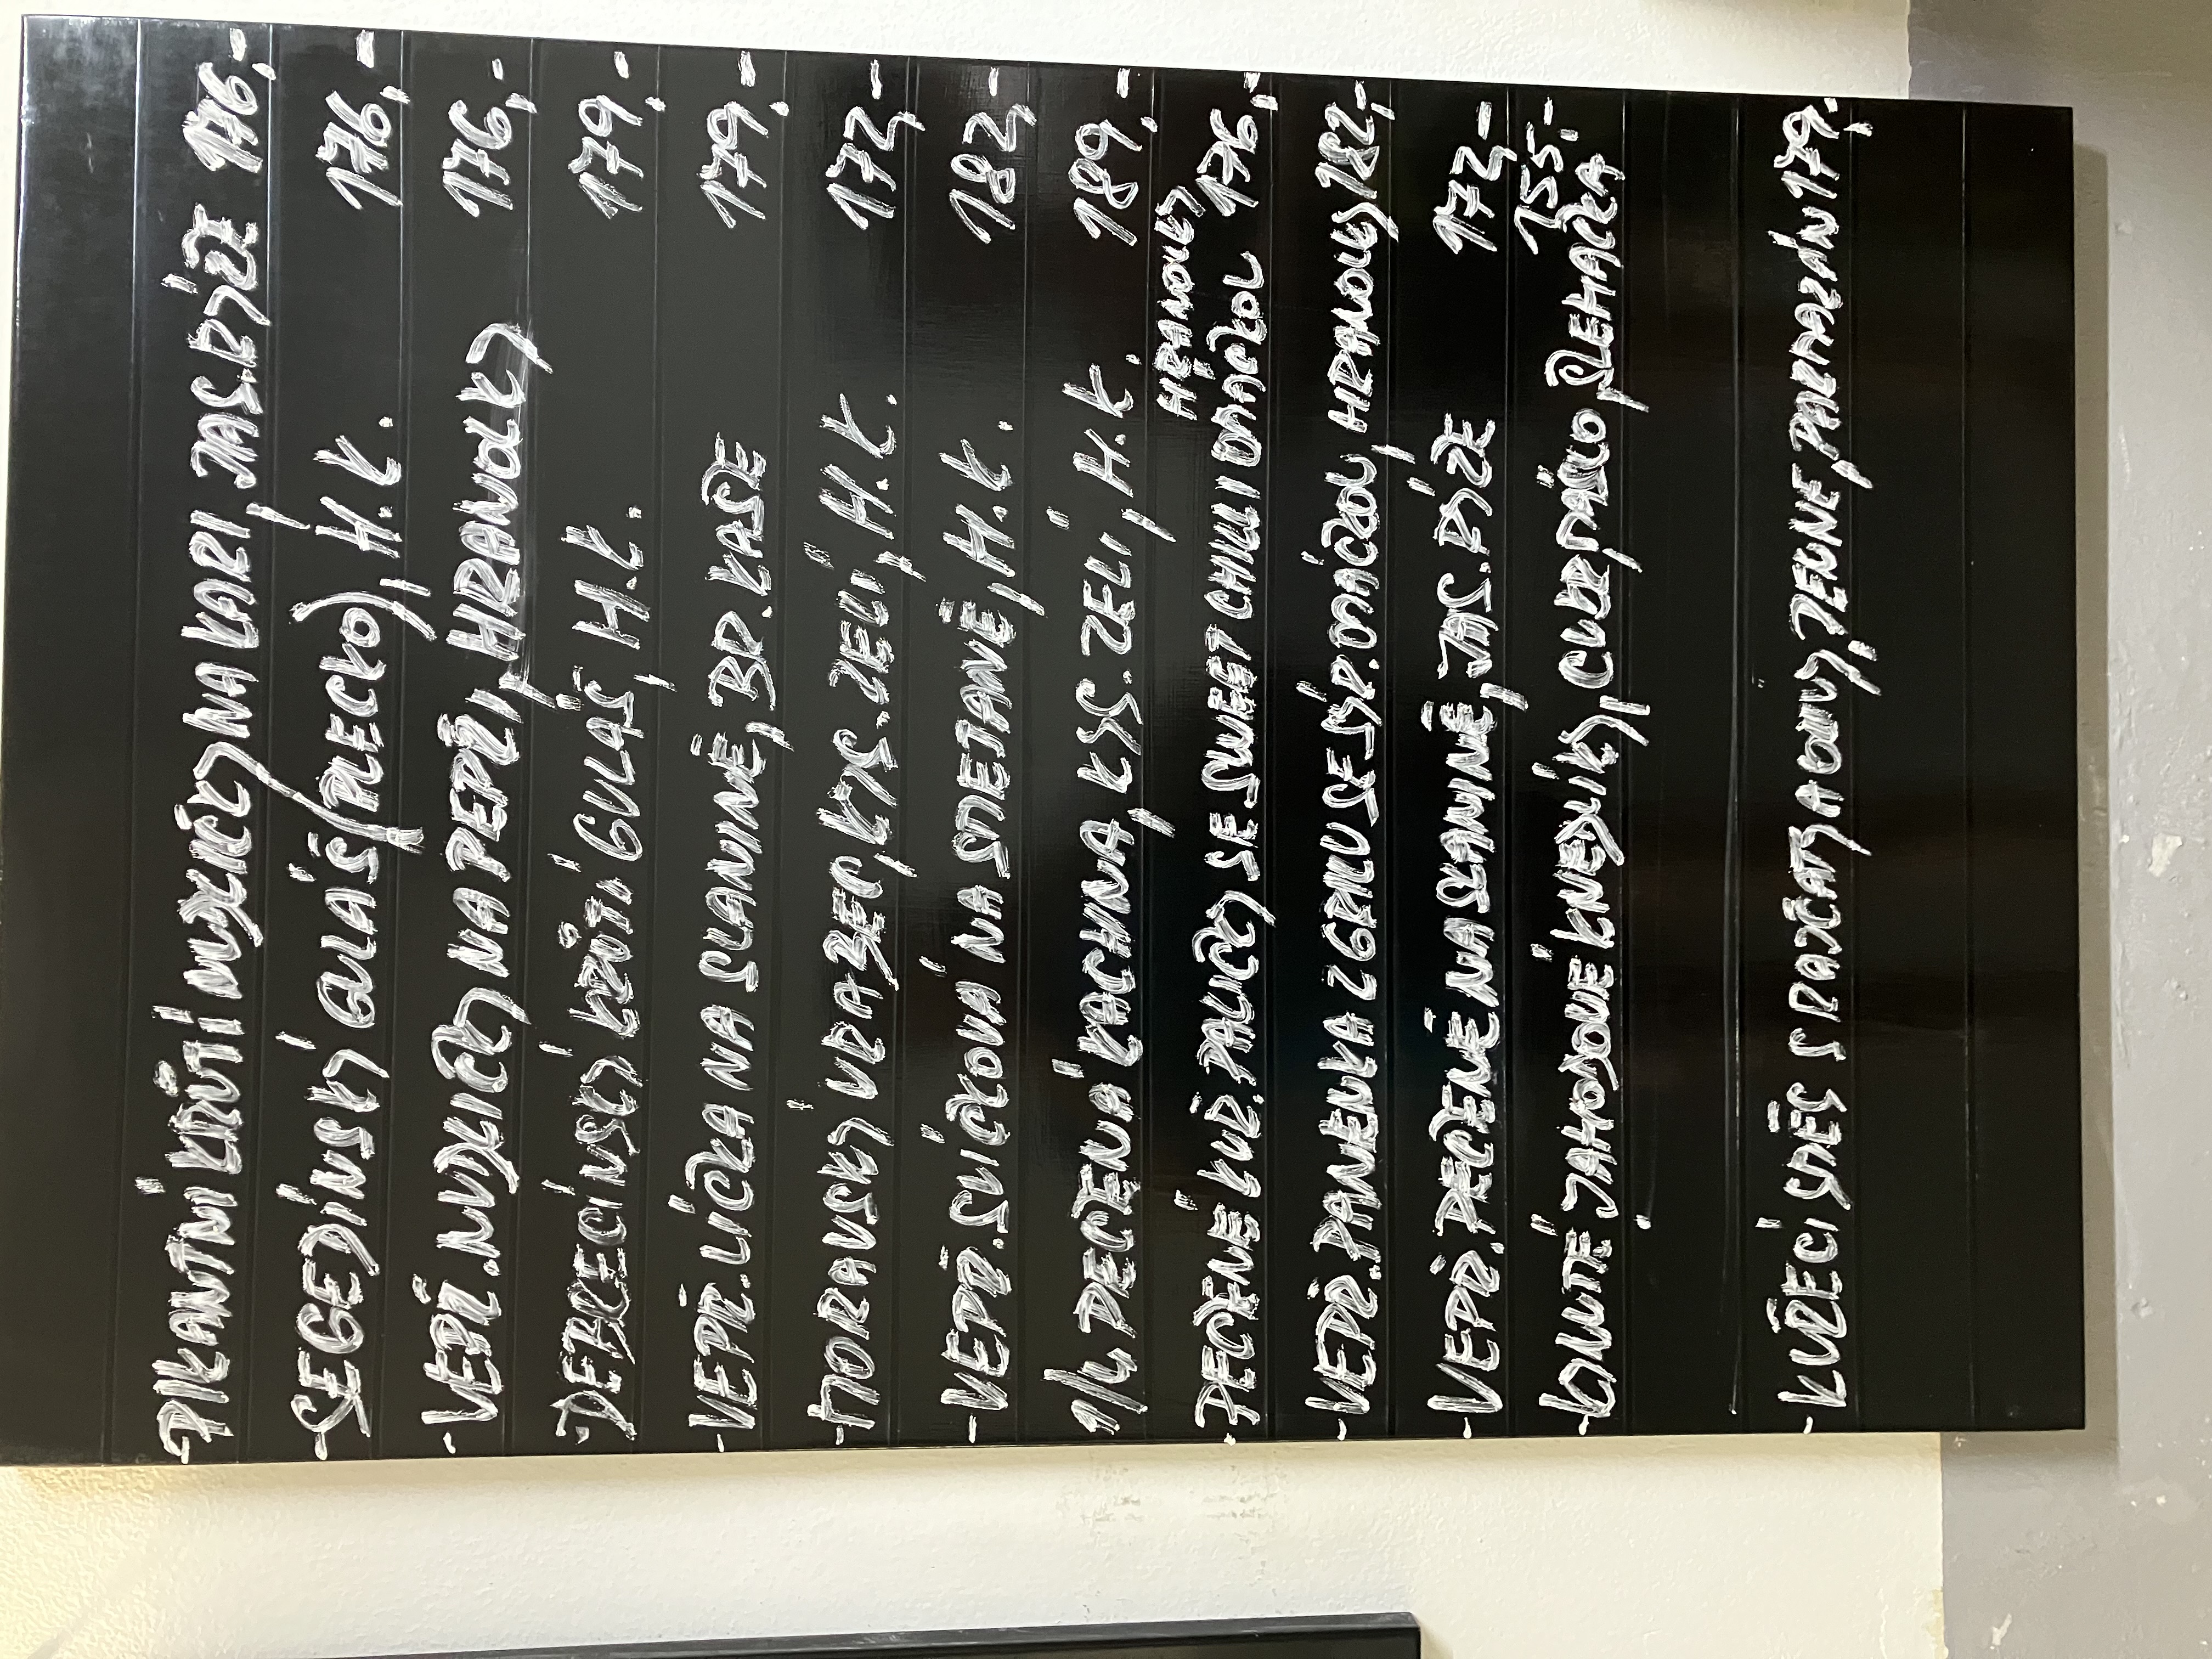 -PIKANTNÍ KRŮTÍ NUDLIČKY NA KARI, JAS.RÝŽE 176,-
-SEGEDÍNSKÝ GULÁŠ (PLECKO), H.K. 176,-
-VEPŘ.NUDLIČKY NA PEPŘI, HRANOLKY 176,-
-DEBRECÍNSKÝ KRŮTÍ GULÁŠ, H.K. 179,-
-VEPŘ.LÍČKA NA SLANINĚ, BR.KAŠE 179,-
-MORAVSKÝ VRABEC, KYS.ZELÍ, H.K. 172,-
-VEPŘ.SVÍČKOVÁ NA SMETANĚ, H.K. 182,-
1/4 PEČENÁ KACHNA, KYS.ZELÍ, H.K. 189,-
HRANOLKY
-PEČENÉ KUŘ.PALIČKY SE SWEET CHILLI OMÁČKOU 176,-
-VEPŘ.PANENKA Z GRILU SE SÝR.OMÁČKOU, HRANOLKY 182,-
-VEPŘ.PEČENĚ NA SLANINĚ, JAS.RÝŽE 172,-
155,-
-KYNUTÉ JAHODOVÉ KNEDLÍKY, CUKR, MÁSLO, ŠLEHAČKA
-KUŘECÍ SMĚS S RAJČATY A OLIVY, PENNE, PARMAZÁN 179,-